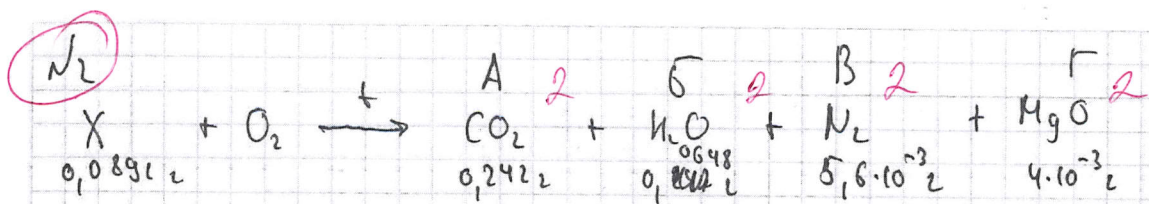 N2
А 2 Б 2 В 2 Г 2
X + O₂ —t→ CO₂ + H₂O + N₂ + MgO
0,0892 г 0,242 г 0,0648 г 5,6·10⁻³ г 4·10⁻³ г